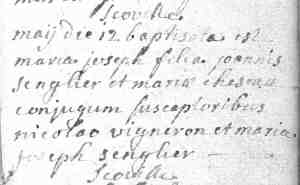 scovill
maij die 12 baptisata est
maria joseph filia joannis
senglier et maria chesnau
conjugum susceptoribus
nicolao vigneron et maria
joseph senglier
scovill